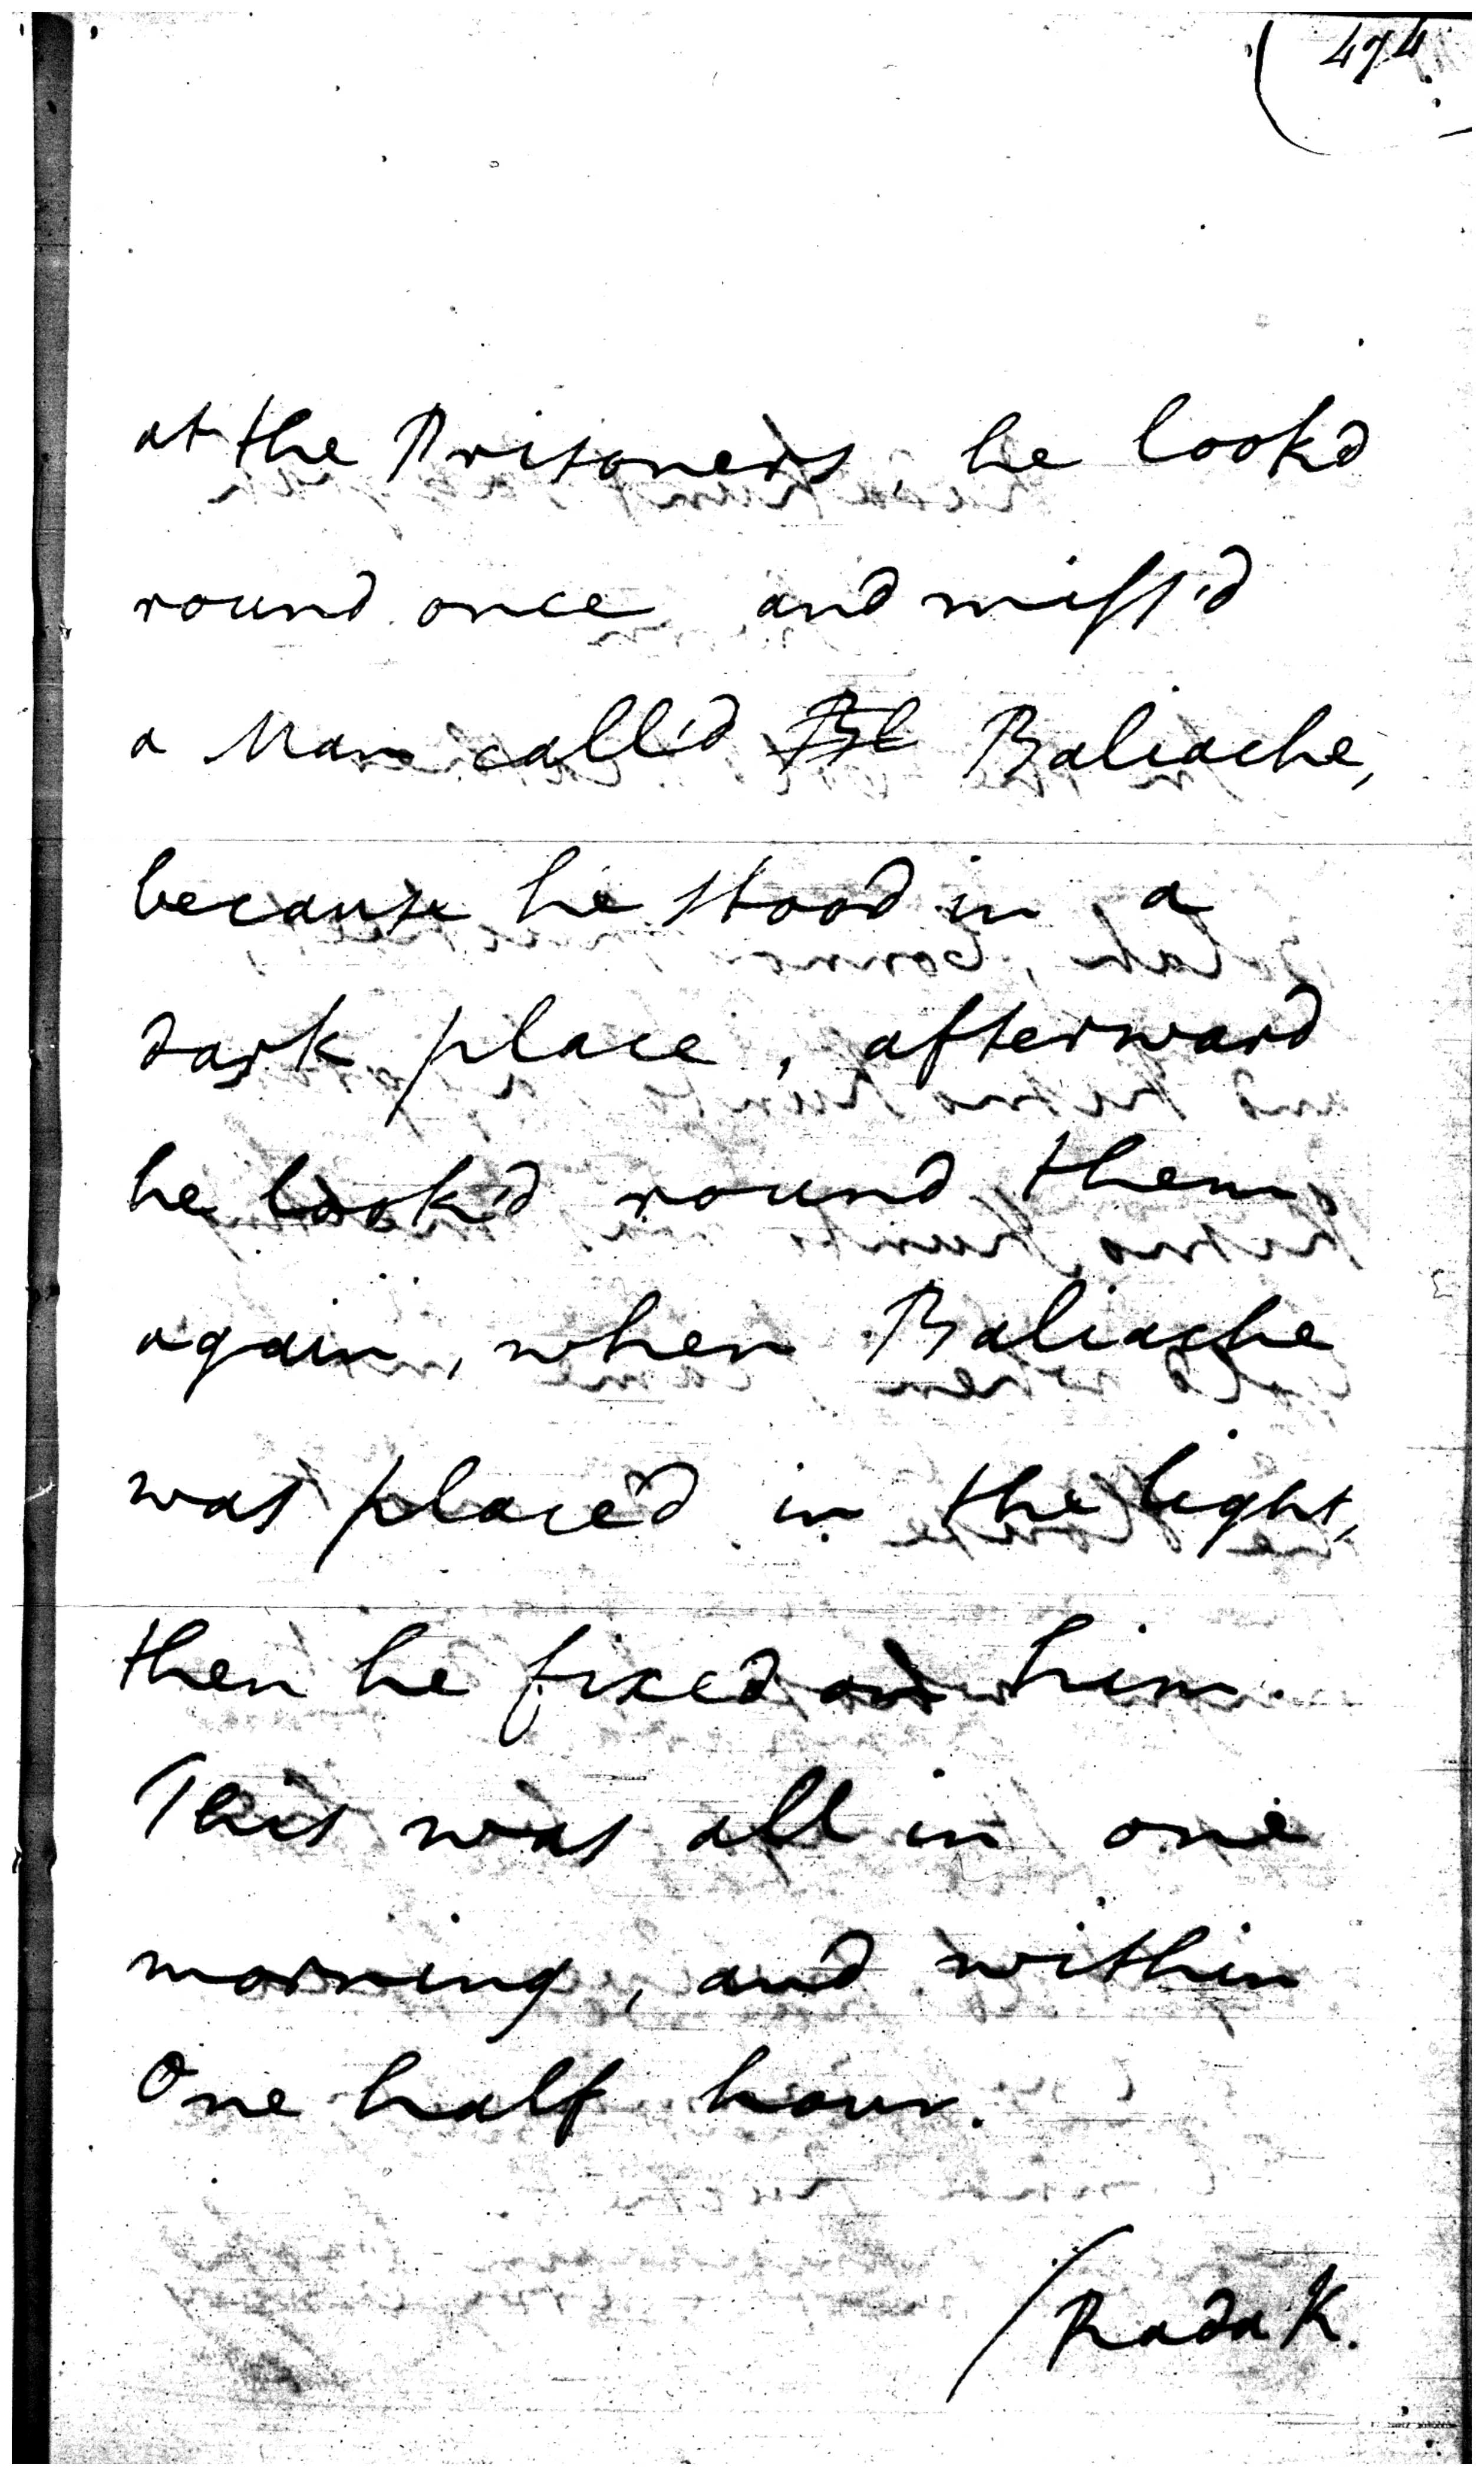 (474
at the Prisoners, he look'd
round once and miss'd
a Man call'd Bl Baliache,
because he stood in a
dark place, afterward
he look'd round them
again, when Baliache
was place'd in the light,
then he fixed on him.
This was all in one
morning, and within
One half hour.
/Rada K.